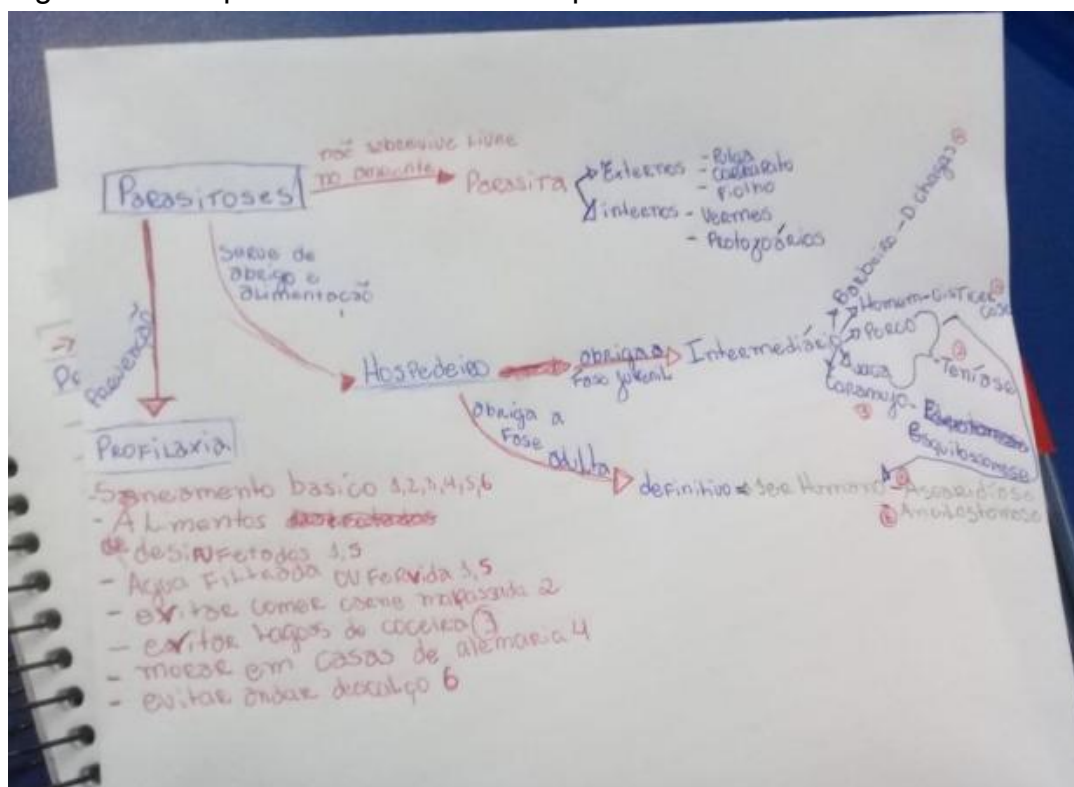 não sobrevive livre
no ambiente
Parasitoses
Parasita
Externos - Pulga
- Carrapato
- Piolho
internos - Vermes
- Protozoários
Serve de
abrigo e
alimentação
Prevenção
Hospedeiro
obriga a
Fase juvenil
Intermediário
Barbeiro - D. chagas 4
Homem - Cisticer
cose 1
Porco
vaca
- Teníase 2
Caramujo -
3
Esquitossomose
obriga a
Fase
adulta
definitivo
Ser Humano
5 - Ascaridíase
6 Ancilostomose
Profilaxia
- Saneamento basico 1,2,3,4,5,6
- ALmentos
desinfetados 1,5
- Agua Filtrada OU Fervida 1,5
- evitar comer carne malpassada 2
- evitar lagoas de coceira 3
- morar em casas de alemaria 4
- evitar andar descalço 6